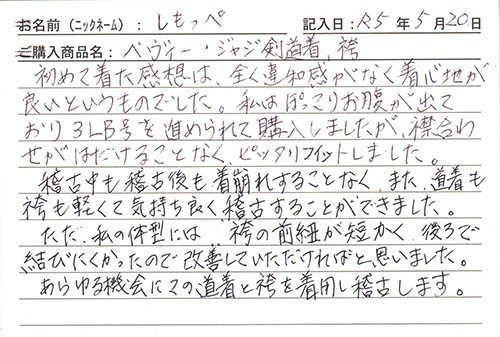 お名前（ニックネーム）：しもっぺ 記入日：R5年5月20日
ご購入商品名：ベヴィー・ジャジ剣道着,袴
初めて着た感想は、全く違和感がなく着心地が
良いというものでした。私はぽっこりお腹が出て
おり3LB号を進められて購入しましたが、襟合わ
せがはだけることなく、ピッタリフィットしました。
稽古中も稽古後も着崩れすることなく、また、道着も
袴も軽くて気持ち良く稽古することができました。
ただ、私の体型には、袴の前紐が短かく、後ろで
結びにくかったので改善していただければと思いました。
あらゆる機会にこの道着と袴を着用し稽古します。